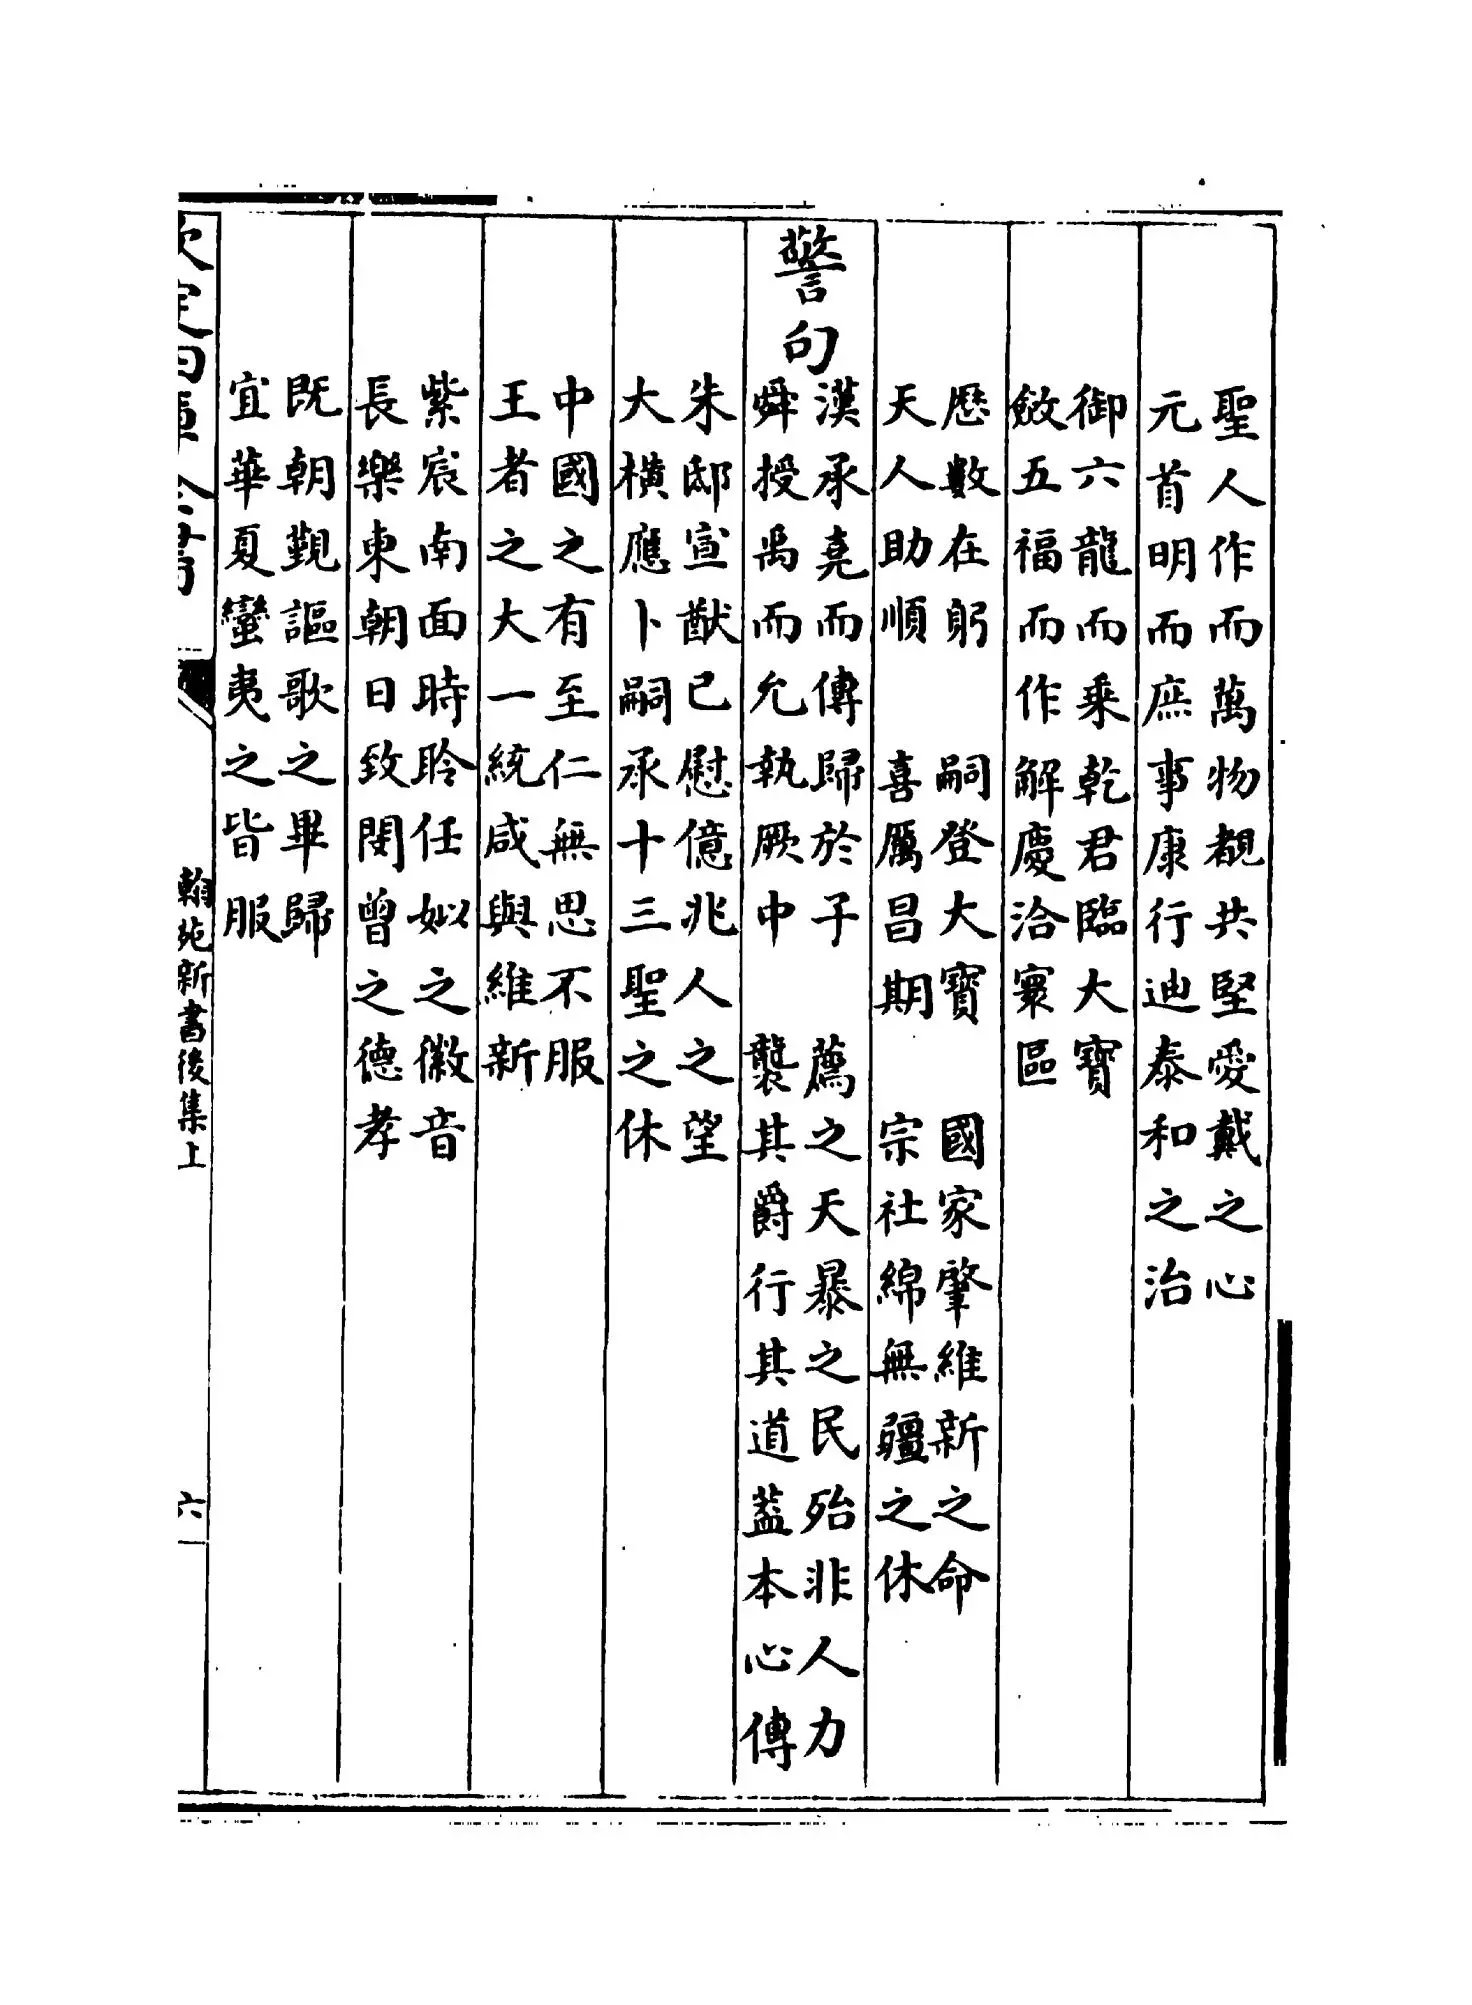 聖人作而萬物覩共堅愛戴之心
元首明而庶事康行迪泰和之治
御六龍而乘乾君臨大寶
斂五福而作解慶洽寰區
歷數在躬　嗣登大寶　國家肇維新之命
天人助順　喜厲昌期　宗社綿無疆之休
警句
漢承堯而傳歸於子　薦之天暴之民殆非人力
舜授禹而允執厥中　襲其爵行其道葢本心傳
朱邸宣猷已慰億兆人之望
大橫應卜嗣承十三聖之休
中國之有至仁無思不服
王者之大一統咸與維新
紫宸南面時聆任姒之徽音
長樂東朝日致閔曾之德孝
既朝覲謳歌之畢歸
宜華夏蠻夷之皆服
欽定四庫全書
翰苑新書後集上
六